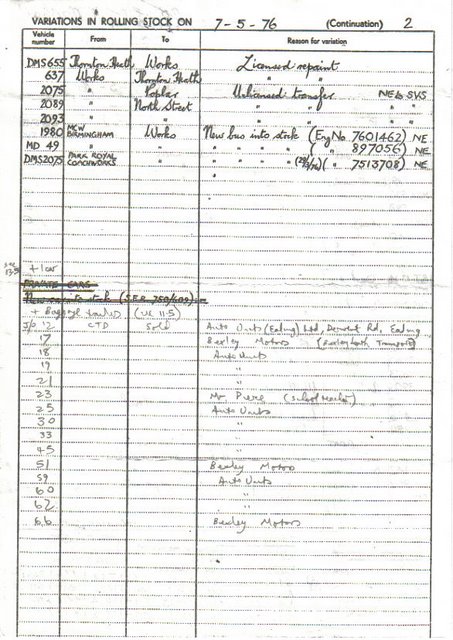 VARIATIONS IN ROLLING STOCK ON 7-5-76 (Continuation) 2
Vehicle number From To Reason for variation
DMS655 Thornton Heath Works Licensed repaint
637 Works Thornton Heath " "
2075 " Poplar Unlicensed transfer NE to SVS
2089 " North Street " " " "
2093 " " " " " "
1980 MCW BIRMINGHAM Works New bus into stock (Eng No 7601462) NE
MD 49 " " " " " " ( " 897056) NE
DMS2075 PARK ROYAL COACHWORKS " " " " " ( " 7513708) NE
+ 1 car
PRIVATE CARS
New car into stock
+ Baggage trailer (UE 11.5)
12 CTD Sold Auto Units (Ealing) Ltd, Derwent Rd, Ealing
17 Bexley Motors
18 Auto Units
19 "
21 "
23 Mr (School Master)
25 Auto Units
30 "
33 "
45 "
51 Bexley Motors
59 Auto Units
60 "
62 "
66 Bexley Motors